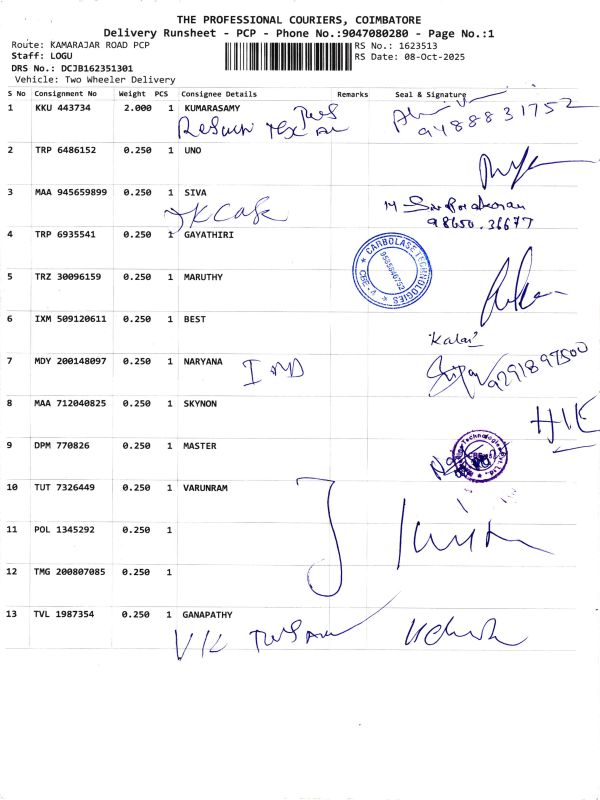 THE PROFESSIONAL COURIERS, COIMBATORE
Delivery Runsheet - PCP - Phone No.:9047080280 - Page No.:1
Route: KAMARAJAR ROAD PCP
Staff: LOGU
DRS No.: DCJB162351301
Vehicle: Two Wheeler Delivery
RS No.: 1623513
RS Date: 08-Oct-2025
S No Consignment No Weight PCS Consignee Details Remarks Seal & Signature
1 KKU 443734 2.000 1 KUMARASAMY
9488831752
2 TRP 6486152 0.250 1 UNO
3 MAA 945659899 0.250 1 SIVA
98650.36677
4 TRP 6935541 0.250 1 GAYATHIRI
CARBOLASE TECHNOLOGIES
CBE-4
5 TRZ 30096159 0.250 1 MARUTHY
6 IXM 509120611 0.250 1 BEST
Kalai
7 MDY 200148097 0.250 1 NARYANA
IND
8 MAA 712040825 0.250 1 SKYNON
9 DPM 770826 0.250 1 MASTER
10 TUT 7326449 0.250 1 VARUNRAM
11 POL 1345292 0.250 1
12 TMG 200807085 0.250 1
13 TVL 1987354 0.250 1 GANAPATHY
VK